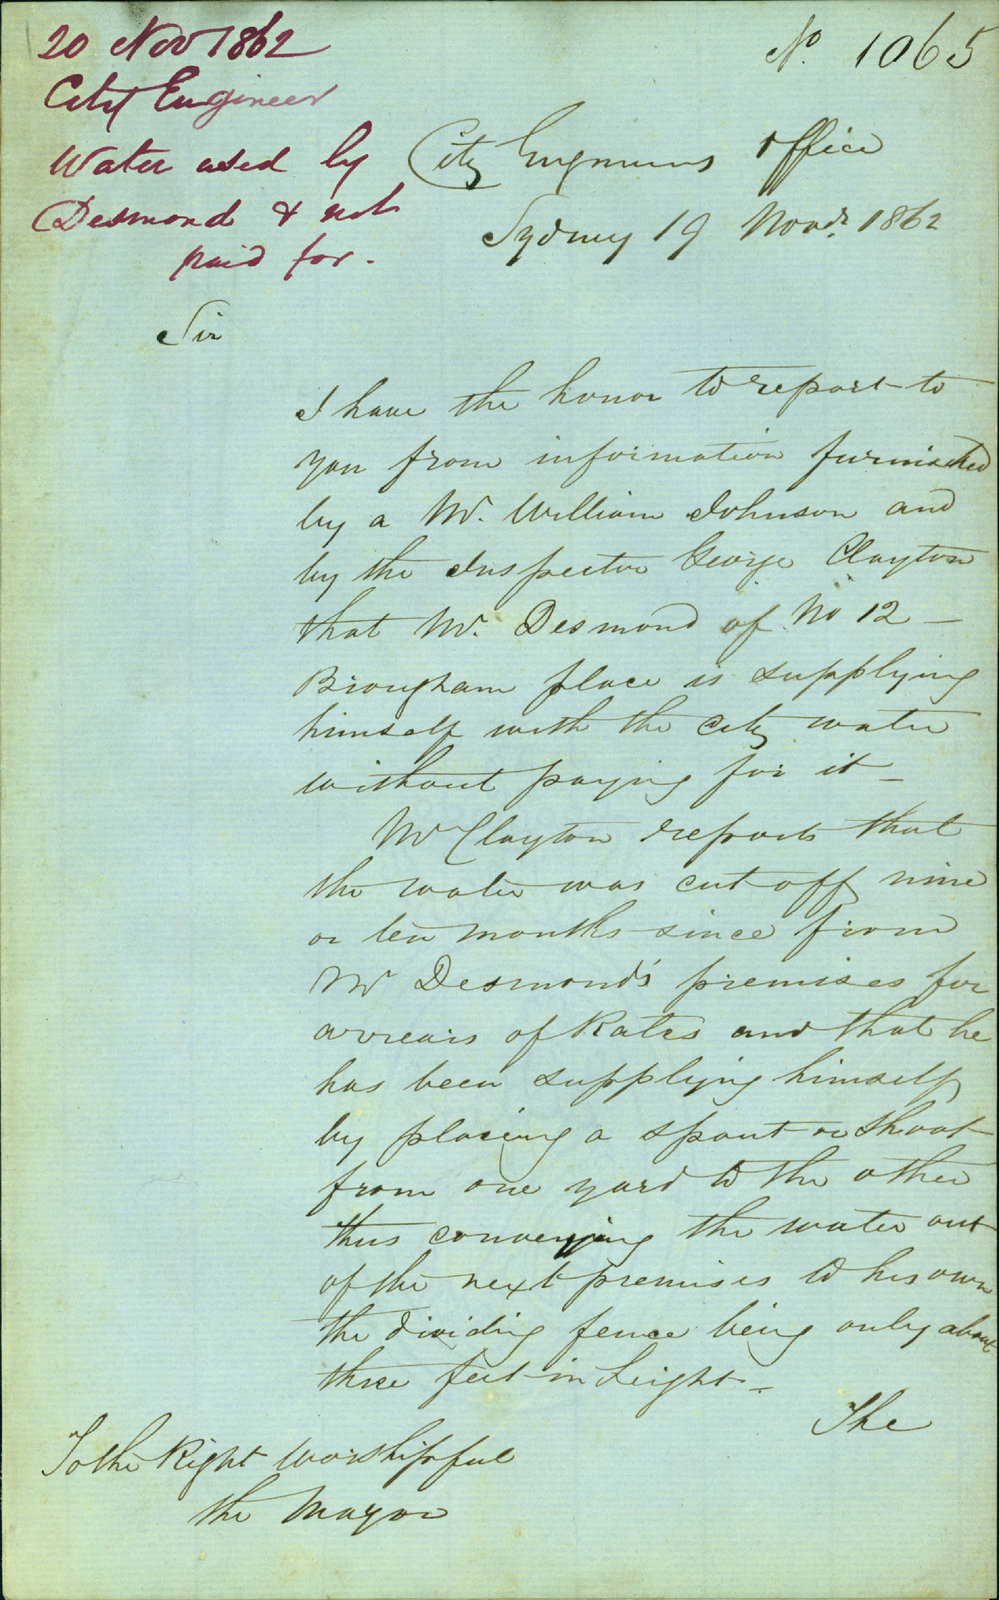 20 Nov 1862
City Engineer
Water used by
Desmond & not
paid for.
No. 1065
City Engineers Office
Sydney 19 Novr. 1862
Sir
I have the honor to report to
you from information furnished
by a Mr. William Johnson and
by the Inspector George Clayton
that Mr. Desmond of No 12 –
Brougham place is supplying
himself with the City water
without paying for it –
Mr Clayton reports that
the water was cut off nine
or ten months since from
Mr Desmond's premises for
arrears of Rates and that he
has been supplying himself
by placing a spout or Shoot
from one yard to the other
thus conveying the water out
of the next premises to his own
the dividing fence being only about
three feet in height –
The
To the Right Worshipful
the Mayor